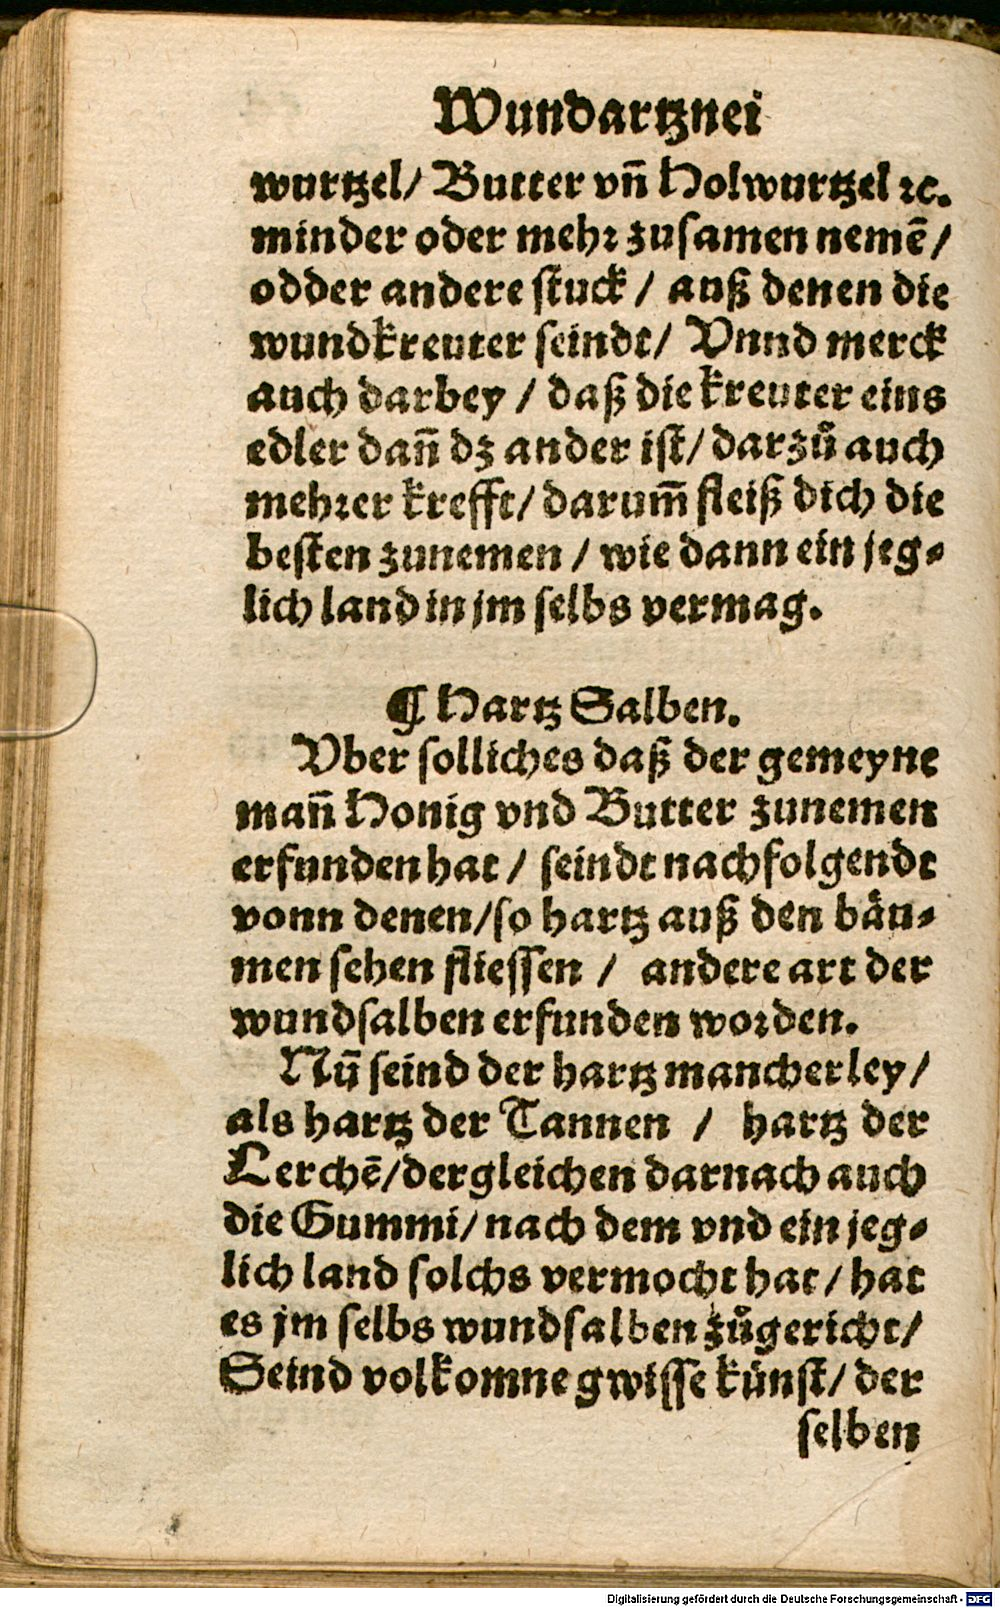 Wundartznei
wurtzel/ Butter vñ Holwurtzel ꝛc.
minder oder mehr zusamen nemẽ/
odder andere stuck / auß denen die
wundkreuter seindt/ Vnnd merck
auch darbey / daß die kreuter eins
edler dañ dz ander ist/ darzuͦ auch
mehrer krefft/ darum̃ fleiß dich die
besten zunemen / wie dann ein jeg⸗
lich land in jm selbs vermag.
¶ Hartz Salben.
Vber solliches daß der gemeyne
mañ Honig vnd Butter zunemen
erfunden hat / seindt nachfolgendt
vonn denen/so hartz auß den baͤu⸗
men sehen fliessen / andere art der
wundsalben erfunden worden.
Nuͦ seind der hartz mancherley/
als hartz der Tannen / hartz der
Lerchẽ/dergleichen darnach auch
die Gummi/ nach dem vnd ein jeg⸗
lich land solchs vermocht hat / hat
es jm selbs wundsalben zuͦgericht/
Seind volkomne gwisse künst/ der
selben
Digitalisierung gefördert durch die Deutsche Forschungsgemeinschaft - DFG